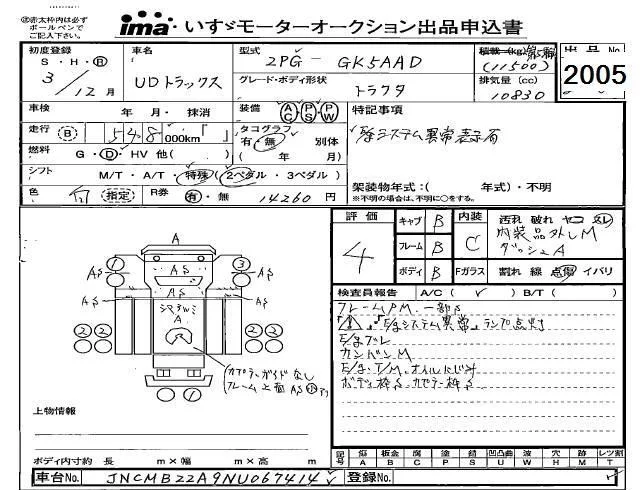 ㊟赤太枠内は必ず
ボールペンで
ご記入下さい。
ima いすゞモーターオークション出品申込書
初度登録 車名 型式 積載(kg) 出品No.
S・H・Ⓡ
3/12月
UDトラックス
2PG - GK5AAD
(11500)
2005
グレード・ボディ形状 トラクタ
排気量(cc) 10830
車検 年 月・ 抹消
装備 AC PS PW
特記事項
走行 B 548 000km
タコグラフ 有・無 別体
( 年 月)
E/gシステム異常表示有
燃料 G・D・HV 他( )
シフト M/T・A/T・特殊(2ペダル・3ペダル)
架装物年式:( 年式)・不明
※不明の場合は、不明に○をする。
色 白 指定 R券 有・無 14260 円
評価 4
キャブ B
フレーム B
ボディ B
内装 C
Fガラス
汚れ 破れ ヤニ スレ
内装品外しM
ダッシュA
割れ 線 点傷 イバリ
検査員報告 A/C( ✓ ) B/T( )
フレームPM、一部S
「⚠」・「E/gシステム異常」ランプ点灯
E/gブレ
カンバンM
E/g、T/M、オイルにじみ
ボディ枠S、カプラー枠S
A
1 3
AS AS
AS AS
AS
シマフメミ
A
2 2 2 2
2 2 2 2
カプラーガイドなし
フレーム上面AS
1
上物情報
ボディ内寸約 長 m×幅 m×高 m
記号 傷 A 板金 B 腐 C 塗 P 錆 S 凹凸曲 U 凹凸 E 波 W 穴 H 跡 M レツ割 T
車台No. JNCMB22A9NU067414 ✓ 登録No. ✓